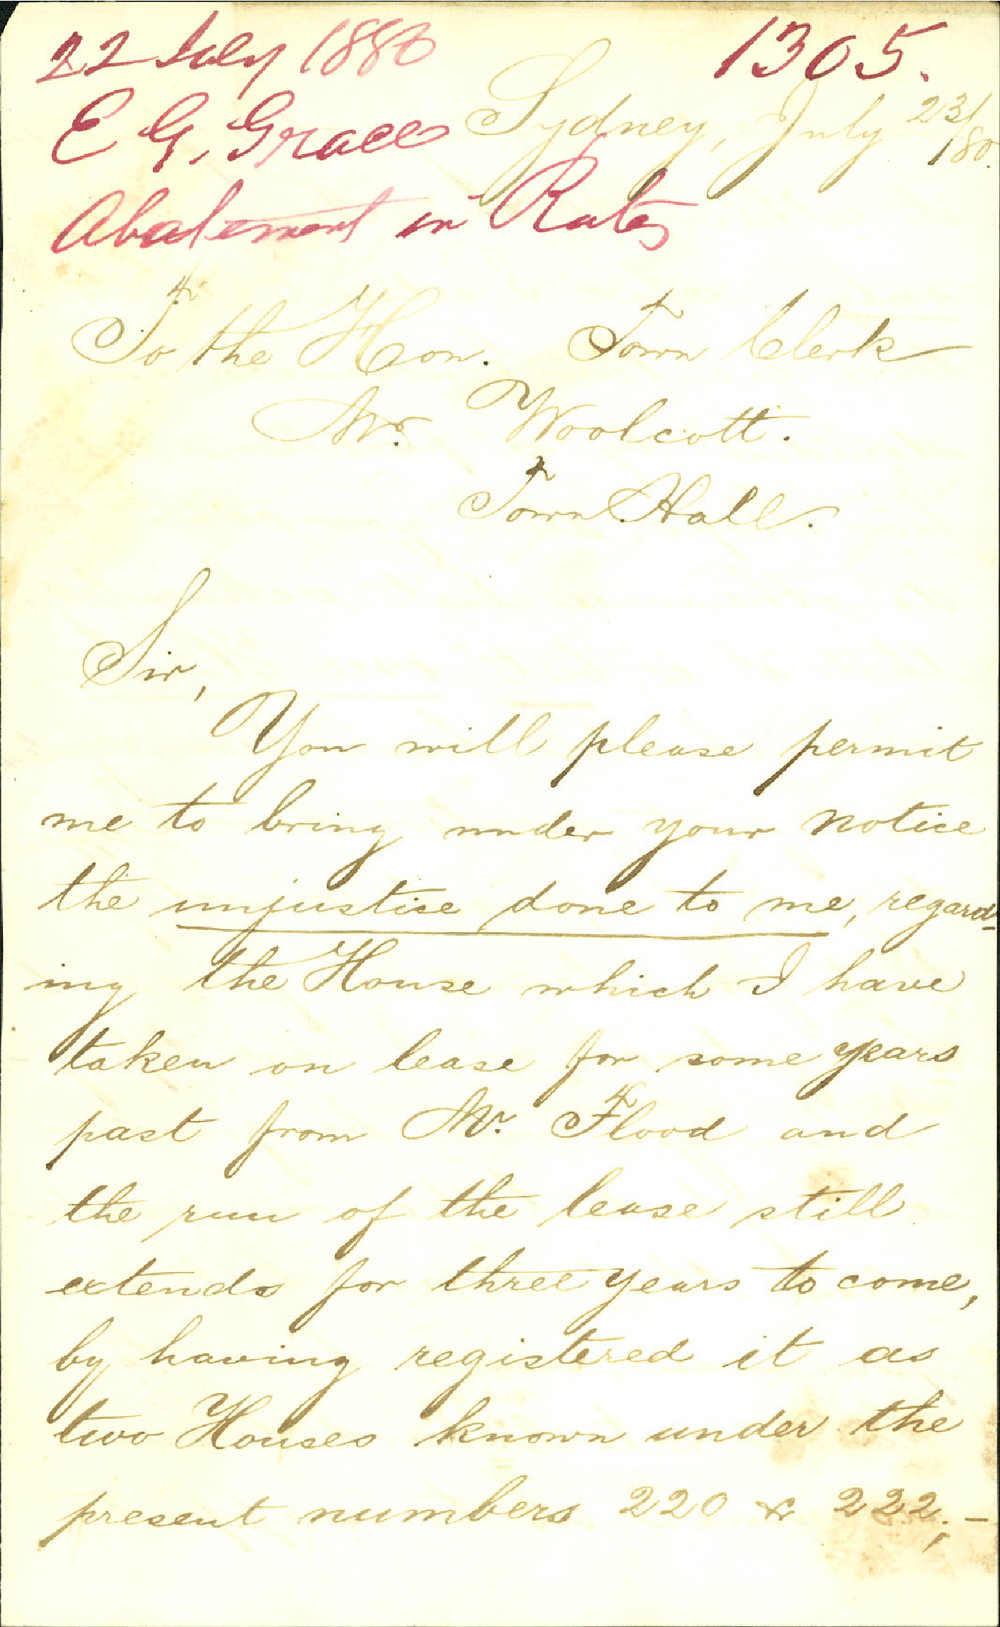 22 July 1880
1305.
E G. Graces
Sydney, July 23/80.
Abatement in Rates
To the Hon. Town Clerk
Mr. Woolcott.
Town Hall.
Sir,
You will please permit
me to bring under your notice
the unjustise done to me, regard-
ing the House which I have
taken on lease for some years
past from Mr. Flood and
the run of the lease still
extends for three years to come,
by having registered it as
two Houses known under the
present numbers 220 & 222; -